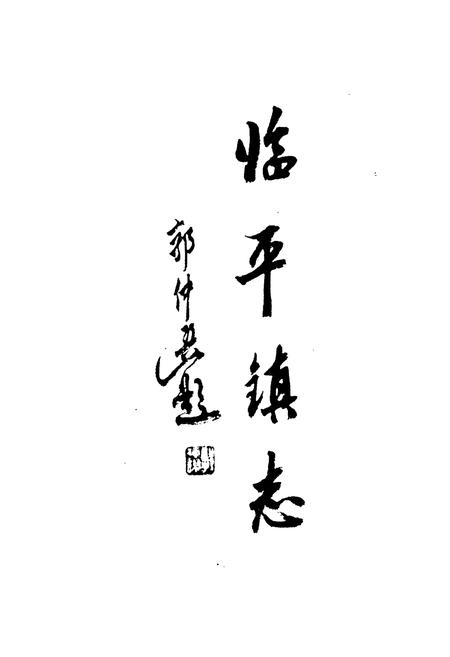 临平镇志
郭仲选题